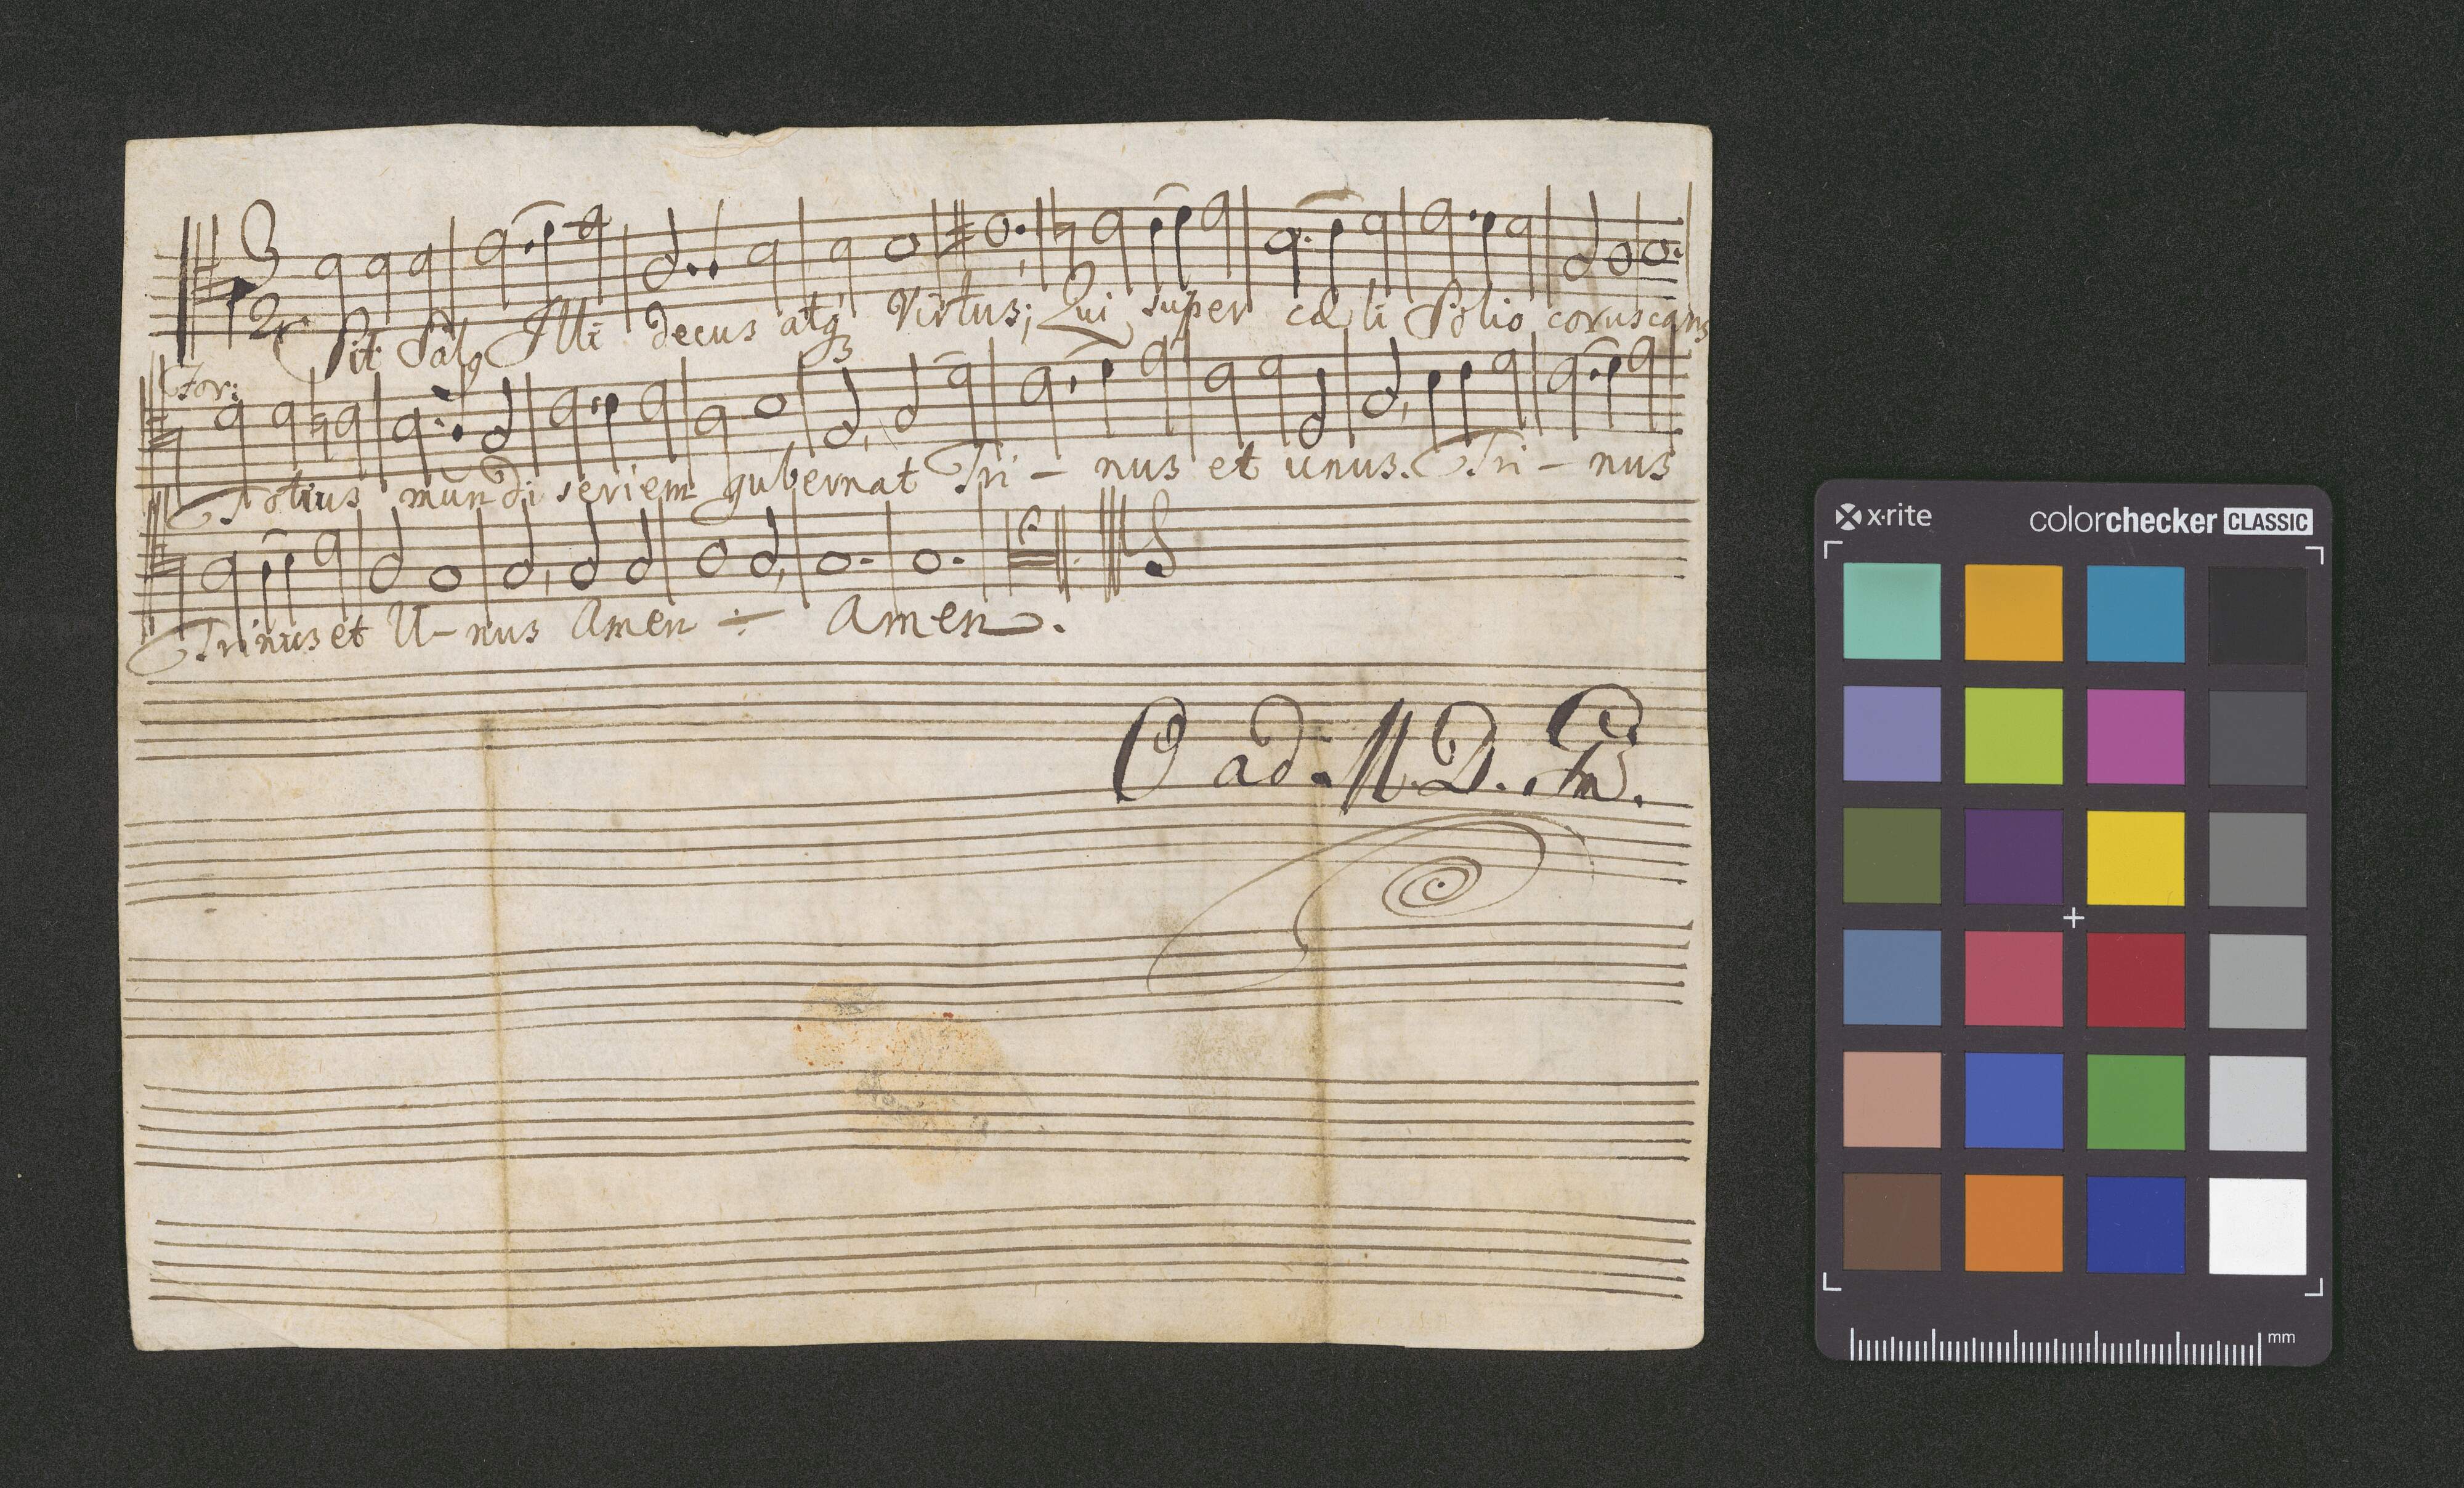 3
2
Sit Salꝯ Illi decus atqꝫ Virtus; Qui super cæli Solio coruscans
For:
Totius mundi seriem gubernat Tri - nus et unus. Tri - nus
Trinus et U - nus Amen ÷ Amen.
O ad. M. D. G.
x·rite colorchecker CLASSIC
mm